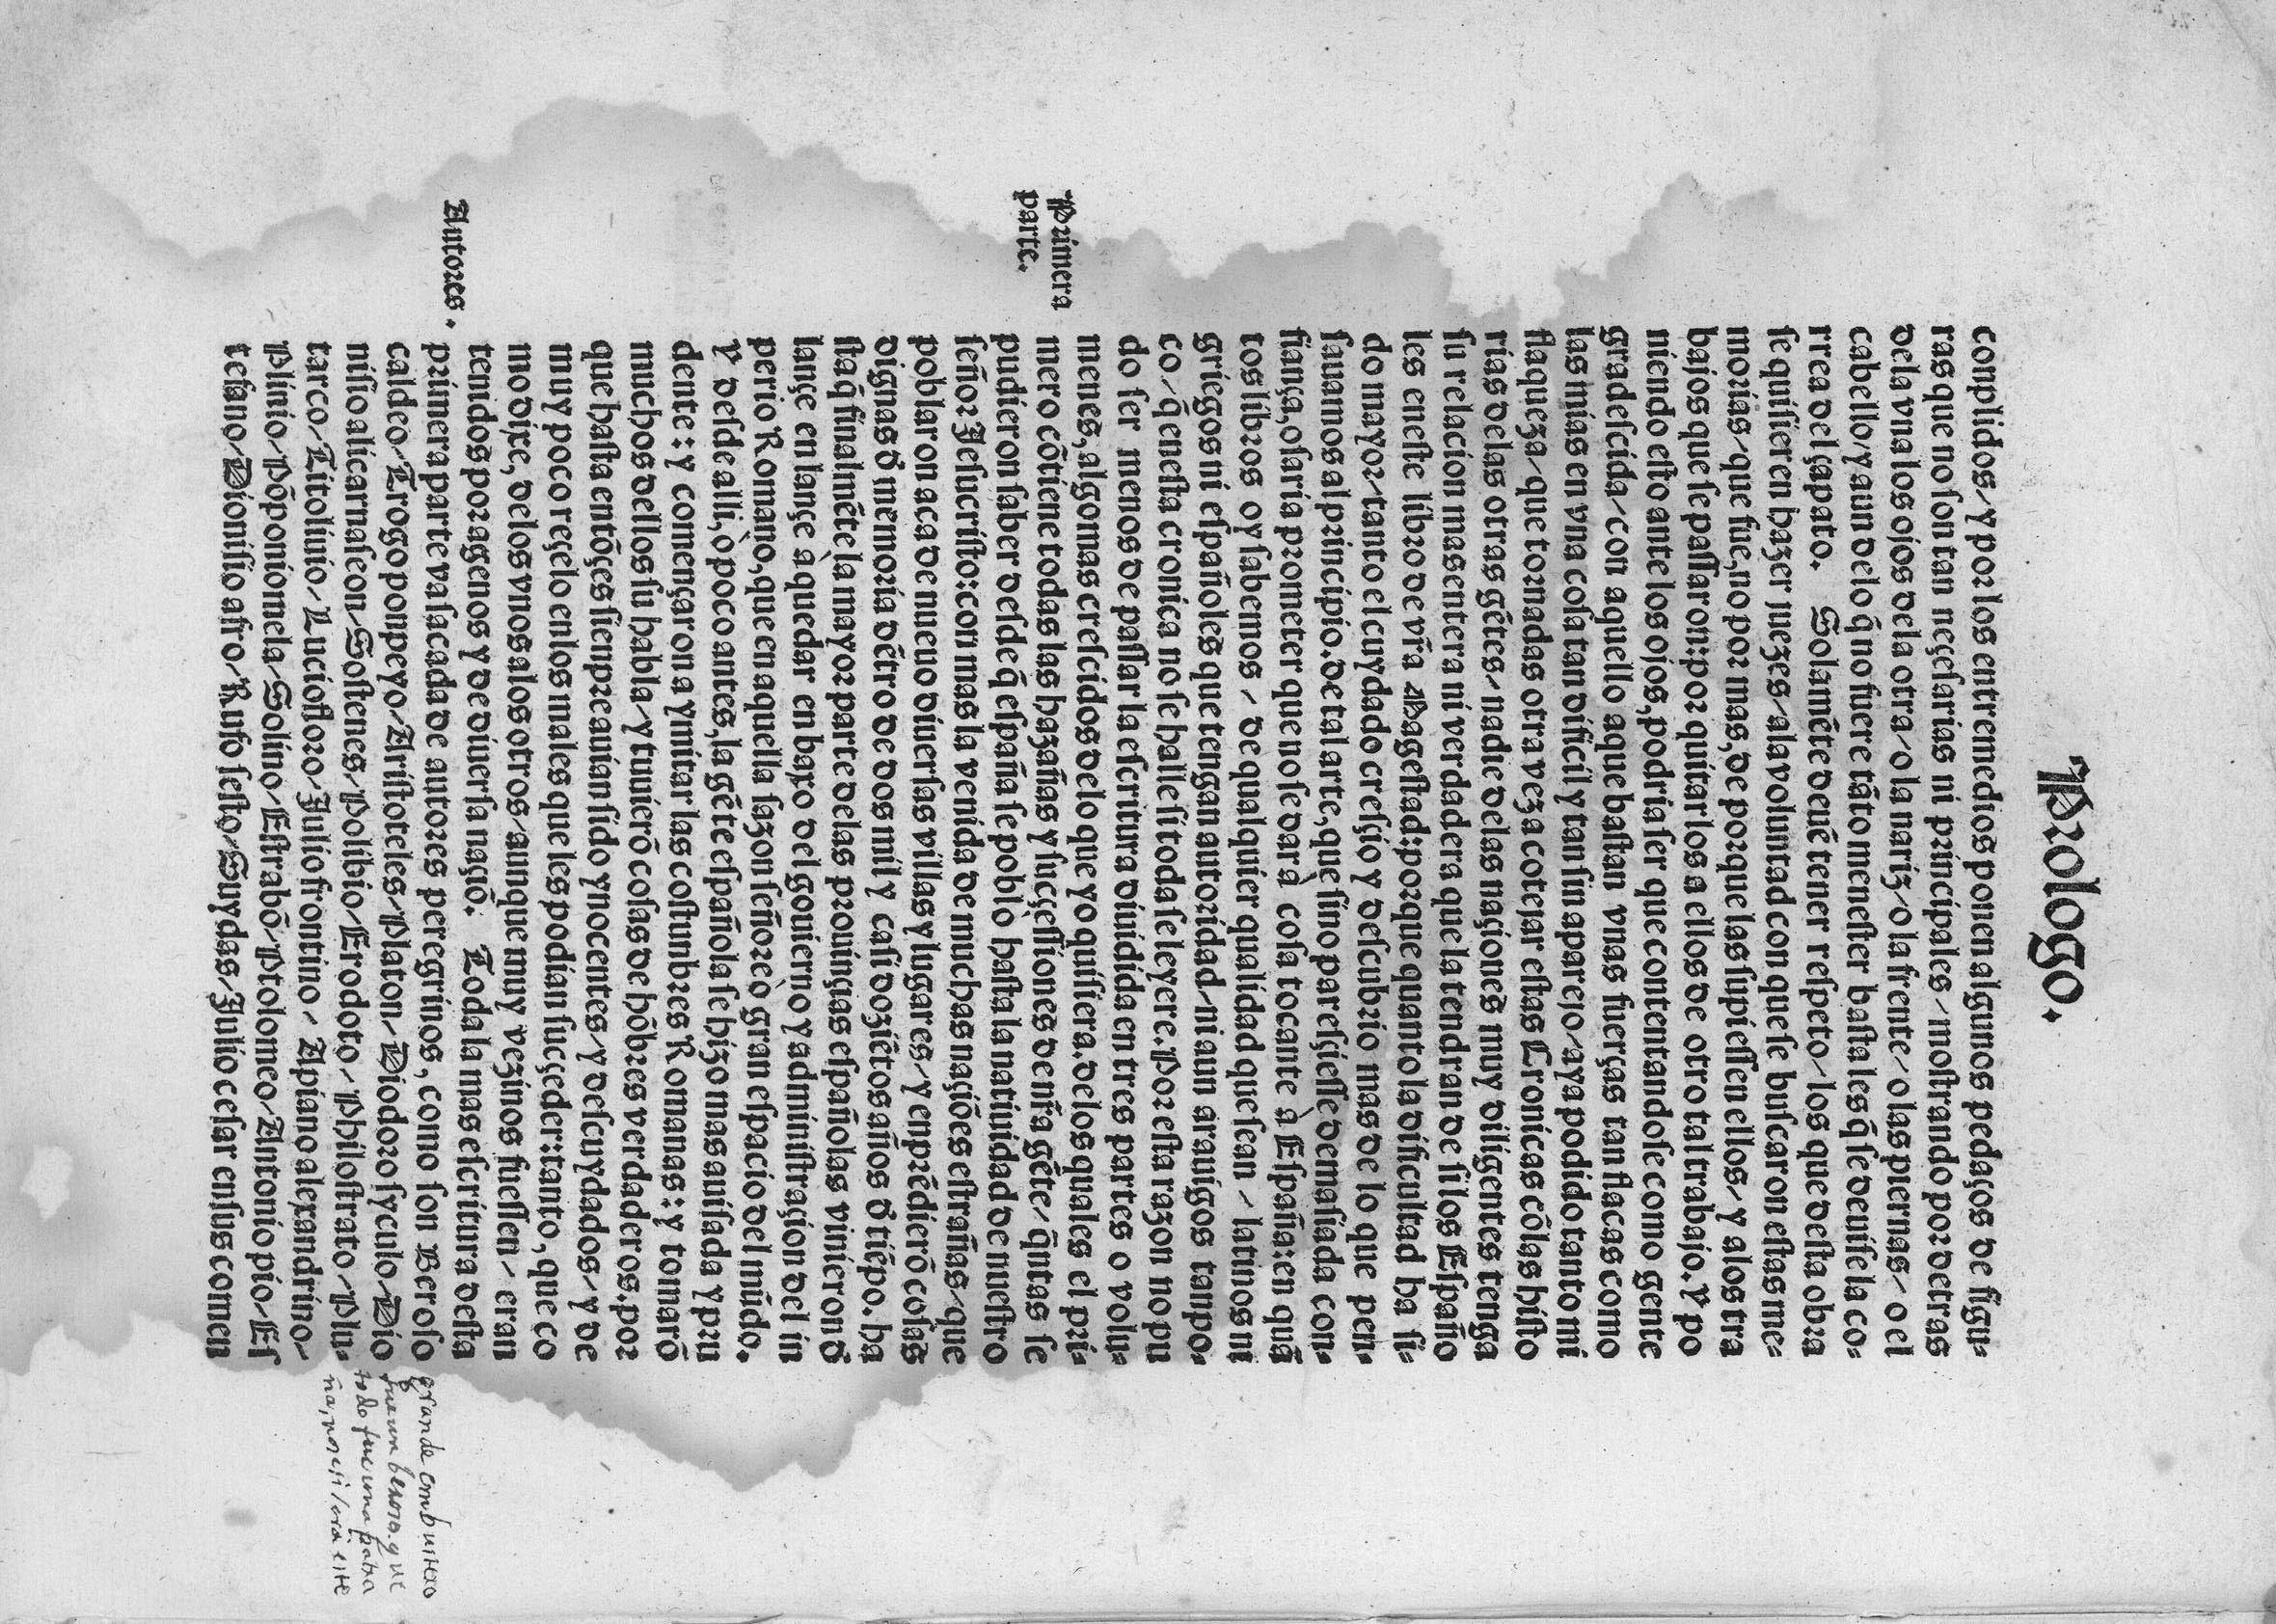 Prologo.
conplidos/y por los entremedios ponen algunos pedaços de figu-
ras que no son tan neçesarias ni principales/mostrando por detras
dela vna los ojos dela otra/o la nariz/o la frente/o las piernas/o el
cabello/y aun delo q̃ no fuere tãto menester basta les q̃ se deuise la co-
rrea del çapato. Solamẽte deuẽ tener respeto/los que desta obra
se quisieren hazer juezes/ala voluntad con que se buscaron estas me-
morias/que fue,no por mas,de porque las supiessen ellos/y alos tra
bajos que se passaron:por quitarlos a ellos de otro tal trabajo.Y po
niendo esto ante los ojos,podria ser que contentandose como gente
gradescida/con aquello aque bastan vnas fuerças tan flacas como
las mias en vna cosa tan dificil y tan sin aparejo/aya podido tanto mi
flaqueza/que tornadas otra vez a cotejar estas Cronicas cõlas histo
rias delas otras gẽtes/nadie delas naçiones muy diligentes tenga
su relacion mas entera ni verdadera que la tendran de si los Españo
les eneste libro de vr̃a Magestad:porque quanto la dificultad ha si-
do mayor/tanto el cuydado cresçio y descubrio mas de lo que pen-
sauamos al principio.de tal arte,que sino paresçiesse demasiada con-
fiança,osaria prometer que no se dara cosa tocante à España:en quã
tos libros oy sabemos/de qualquier qualidad que sean/latinos ni
griegos ni españoles que tengan autoridad/ni aun arauigos tanpo-
co/q̃ enesta cronica no se halle si toda se leyere.Por esta razon no pu
do ser menos de passar la escritura diuidida en tres partes o volu-
menes,algo mas crescidos delo que yo quisiera.delos quales el pri-
Primera
parte.
mero cõtiene todas las hazañas y sucçessiones de nr̃a gẽte/q̃ntas se
pudieron saber desde q̃ españa se poblò hasta la natiuidad de nuestro
señor Jesucristo:con mas la venida de muchas naçiões estrañas/que
poblaron aca de nueuo diuersas villas y lugares/y enprẽdierõ cosas
dignas d̃ memoria dẽtro de dos mill y casi doziẽtos años d̃ tiẽpo.ha
staq̃ finalmẽte la mayor parte delas prouinçias españolas vinieron d̃
lançe en lançe a quedar en baxo del gouierno y administraçion del in
perio Romano,que en aquella sazon señoreò gran espacio del mũdo.
Y desde alli,o poco antes,la gẽte española se hizo mas auisada y pru
dente:y començaron a ymitar las costunbres Romanas:y tomarõ
muchos dellos su habla/y tuuierõ cosas de hõbres verdaderos.por
que hasta entõçes sienpre auian sido ynocentes/y descuydados/y de
muy poco reçelo enlos males que les podian suçceder:tanto,que co
mo dixe,delos vnos alos otros/aunque muy vezinos fuessen/eran
tenidos por agenos y de diuersa naçiõ. Toda la mas escritura desta
Autores.
primera parte va sacada de autores peregrinos,como son Beroso
caldeo/Trogo ponpeyo/Aristoteles/Platon/Diodoro syculo/Dio
nisio alicarnaseon/Sostenes/Polibio/Erodoto/Philostrato/Plu-
tarco/Titoliuio/Lucio floro/Julio frontino/Apiano alexandrino/
Plinio/Põponio mela/Solino/Estrabõ/Ptolomeo/Antonio pio/Es
tesano/Dionisio afro/Rufo festo/Suydas/Julio cesar en sus comen
grande enbustero
fue un beroso. que
todo fue una patra
ña,